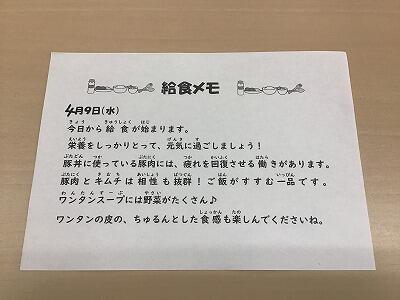 給食メモ
4月9日(水)
今日から給食が始まります。
栄養をしっかりとって、元気に過ごしましょう!
豚丼に使っている豚肉には、疲れを回復させる働きがあります。
豚肉とキムチは相性も抜群!ご飯がすすむ一品です。
ワンタンスープには野菜がたくさん♪
ワンタンの皮の、ちゅるんとした食感も楽しんでくださいね。